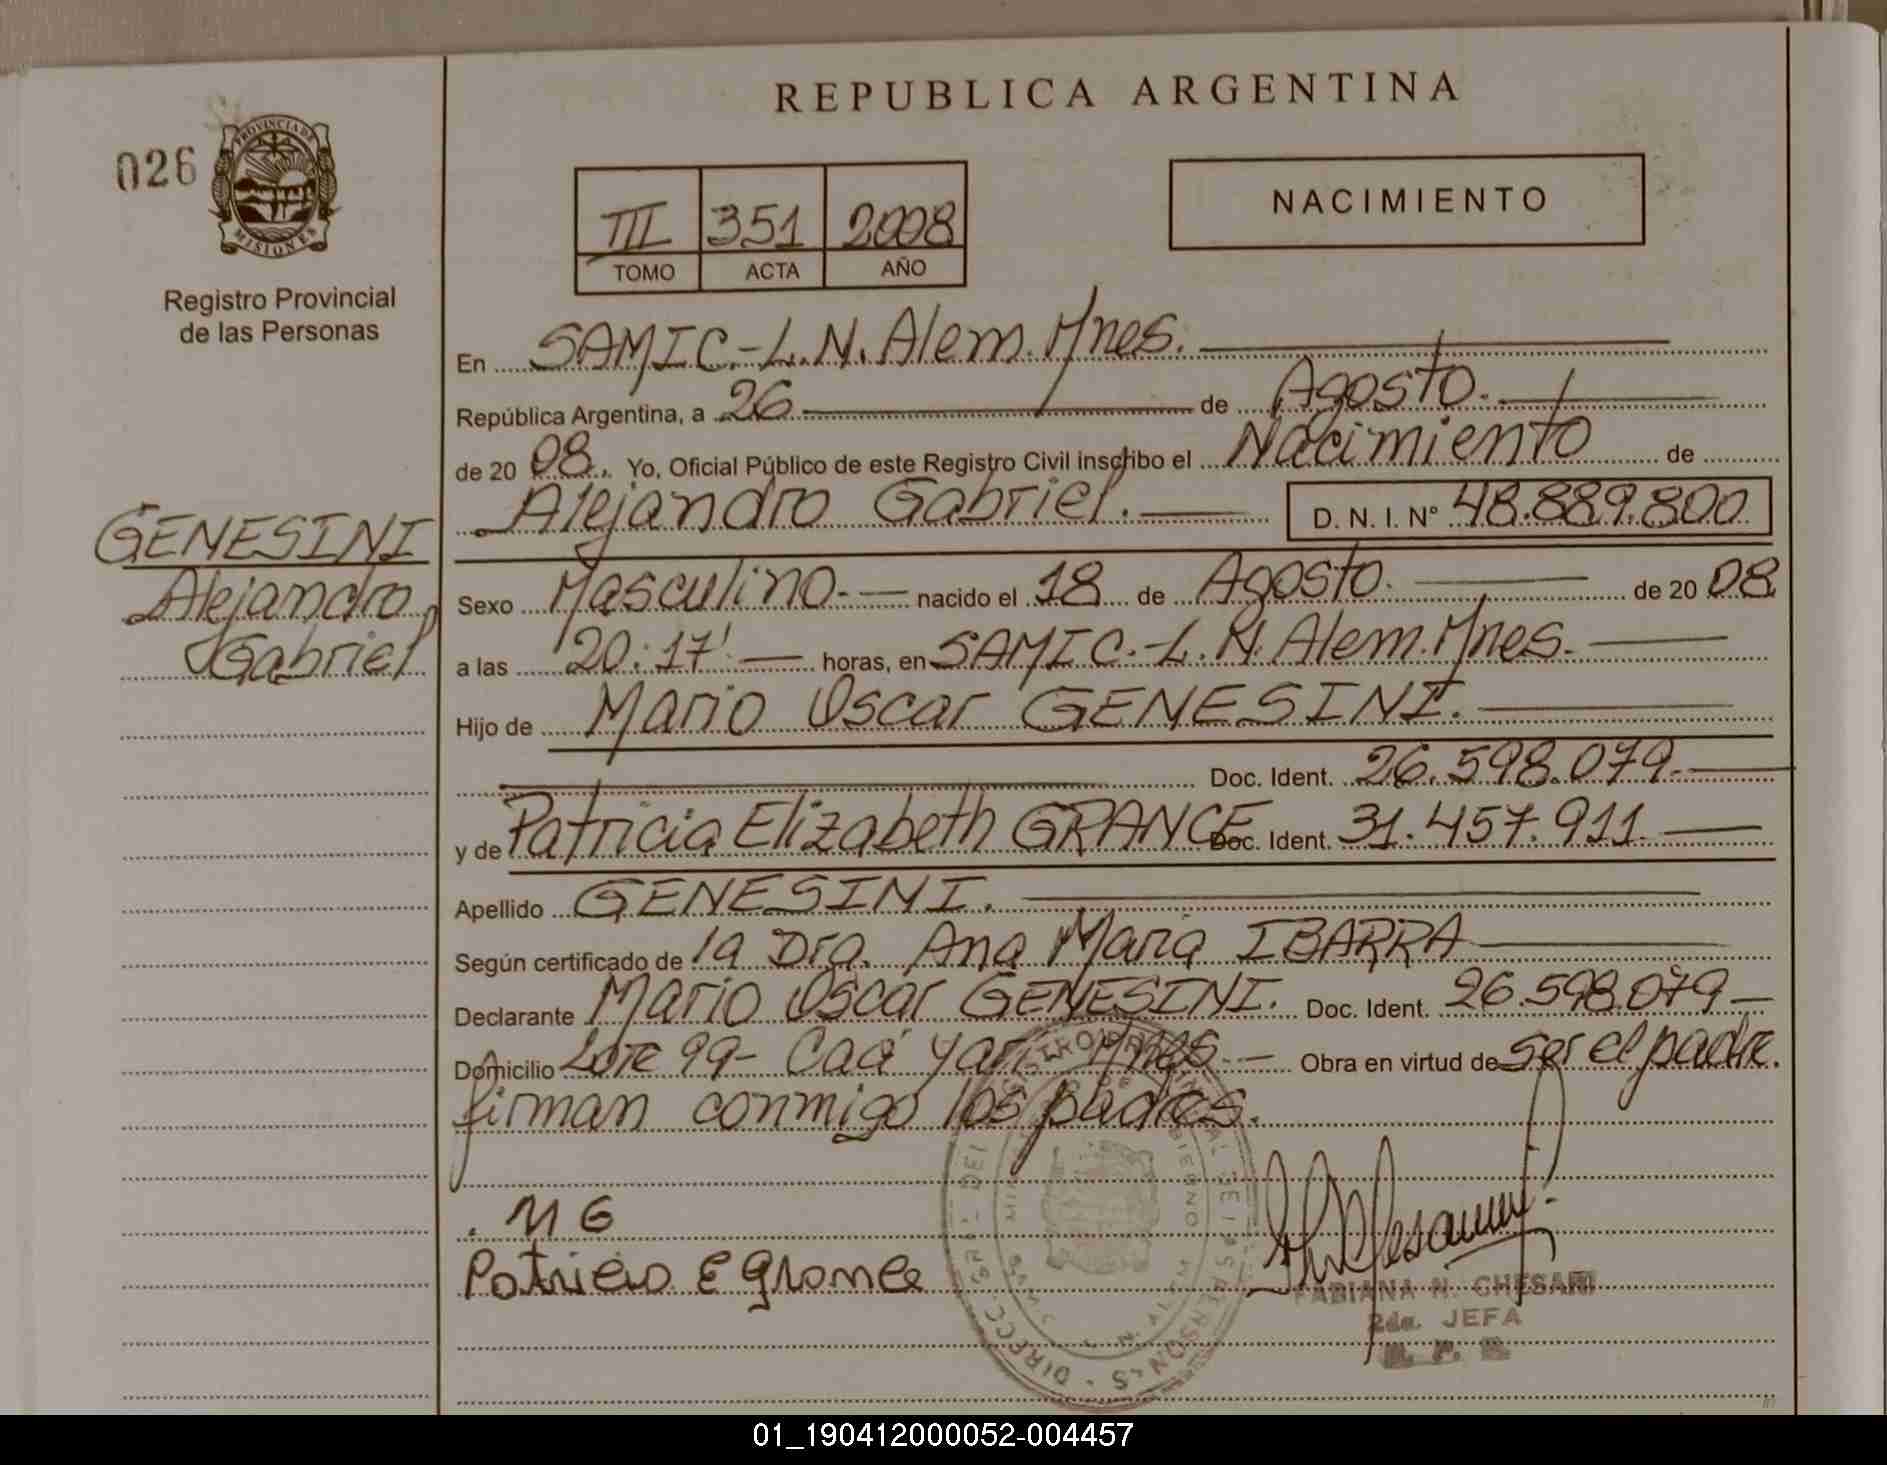 REPUBLICA ARGENTINA
026
PROVINCIA DE
MISIONES
Registro Provincial
de las Personas
NACIMIENTO
III 351 2008
TOMO ACTA AÑO
En SAMIC.-L.N.Alem.Mnes.
República Argentina, a 26 de Agosto.
de 20 08. Yo, Oficial Público de este Registro Civil inscribo el Nacimiento de
Alejandro Gabriel. D. N. I. Nº 48.889.800
GENESINI
Alejandro
Gabriel
Sexo Masculino.- nacido el 18 de Agosto. de 20 08
a las 20:17' horas, en SAMIC.-L.N.Alem.Mnes.
Hijo de Mario Oscar GENESINI.
Doc. Ident. 26.598.079.
y de Patricia Elizabeth GRANCE Doc. Ident. 31.457.911.
Apellido GENESINI.
Según certificado de la Dra. Ana Maria IBARRA
Declarante Mario Oscar GENESINI. Doc. Ident. 26.598.079
Domicilio Lote 99- Caá Yarí Mnes.- Obra en virtud de ser el padre.
firman conmigo los padres.
M G
Patricia E Grance
FABIANA N. CHESANI
2da. JEFA
01_190412000052-004457